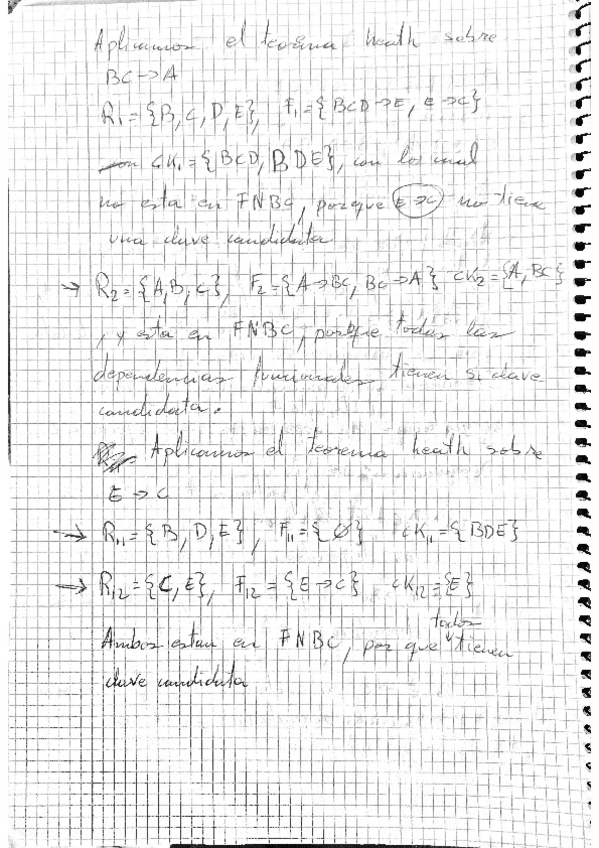 Aplicamos el teorema heath sobre
BC->A
R₁={B,C,D,E}, F₁={BCD->E, E->C}
con CK₁={BCD, BDE}, con lo cual
no esta en FNBC, porque E->C no tiene
una clave candidata
-> R₂={A,B,C}, F₂={A->BC, BC->A} CK₂={A,BC}
, y esta en FNBC, porque todas las
dependencias funcionales tienen si clave
candidata.
Aplicamos el teorema heath sobre
E->C
-> R₁₁={B,D,E}, F₁₁={Ø} CK₁₁={BDE}
-> R₁₂={C,E}, F₁₂={E->C} CK₁₂={E}
Ambos estan en FNBC, por que todos tienen
clave candidata